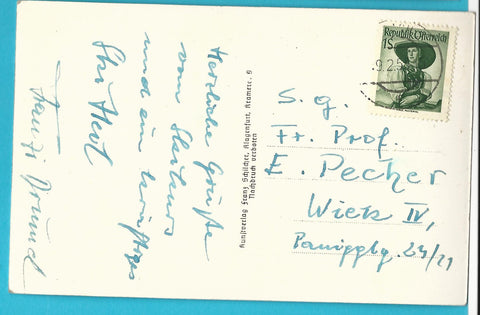 Herzliche Grüße
vom Skikurs
und ein kräftiges
Ski Heil
Republik Österreich
1S
9.2.5
S. g.
Fr. Prof.
E. Pecher
Wien IV,
Paniglg. 24/21
Kunstverlag Franz Schilcher, Klagenfurt, Kramerg. 9
Nachdruck verboten